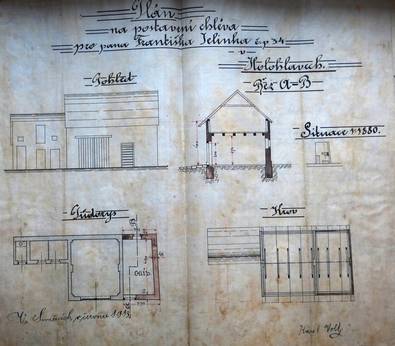 Plán
na postavení chléva
pro pana Františka Jelínka č.p. 34
v
Holohlavech.
Pohled
Řez A-B
Situace 1:2880.
Půdorys
Krov
Ve Smiřicích v červnu 1913
Karel Volf